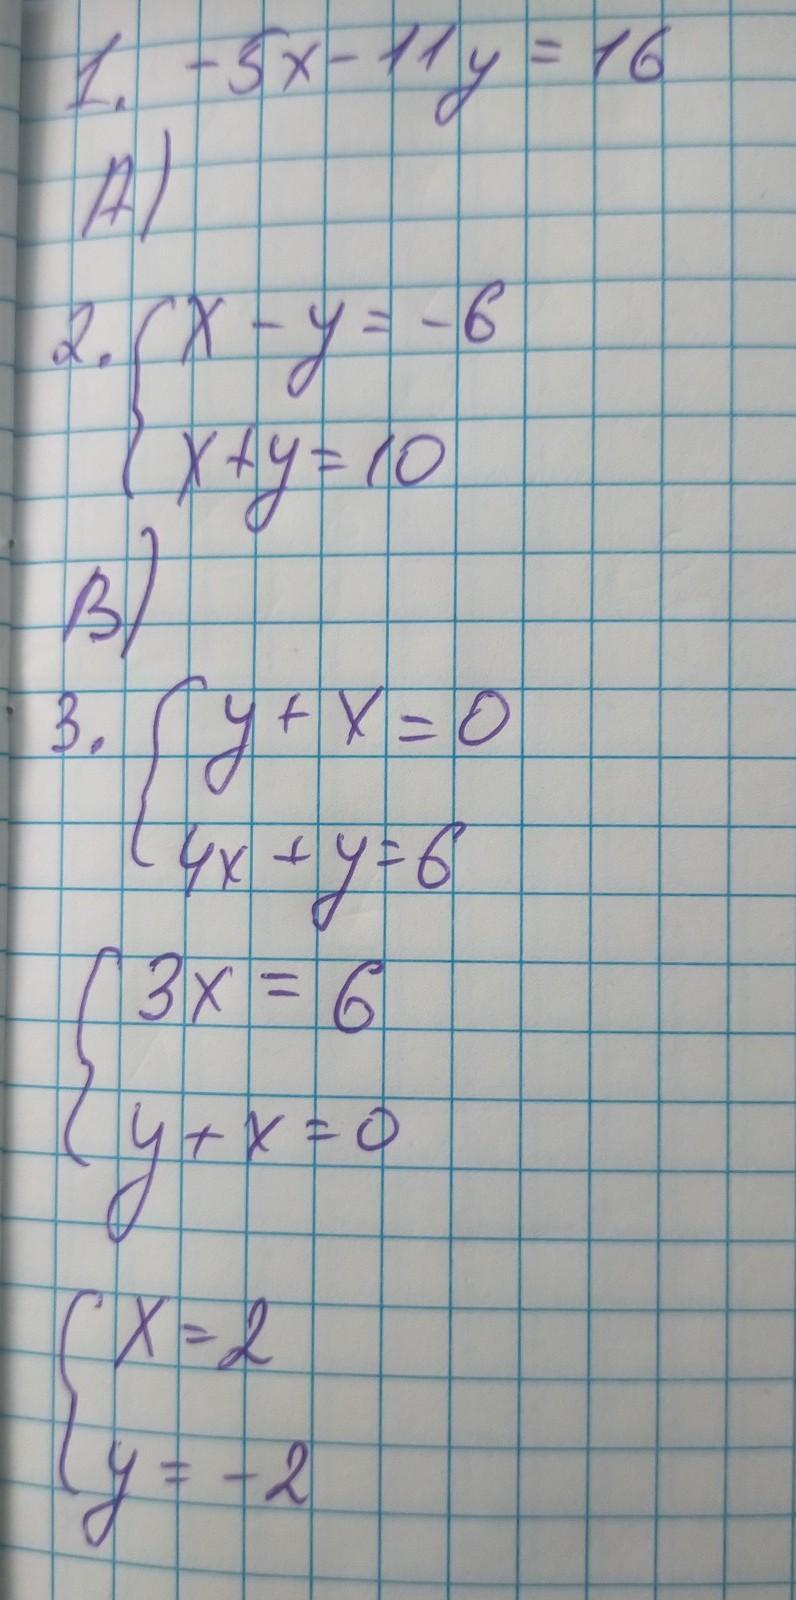 1. -5x - 11y = 16
A)
2. { x - y = -6
x + y = 10
B)
3. { y + x = 0
4x + y = 6
{ 3x = 6
y + x = 0
{ x = 2
y = -2